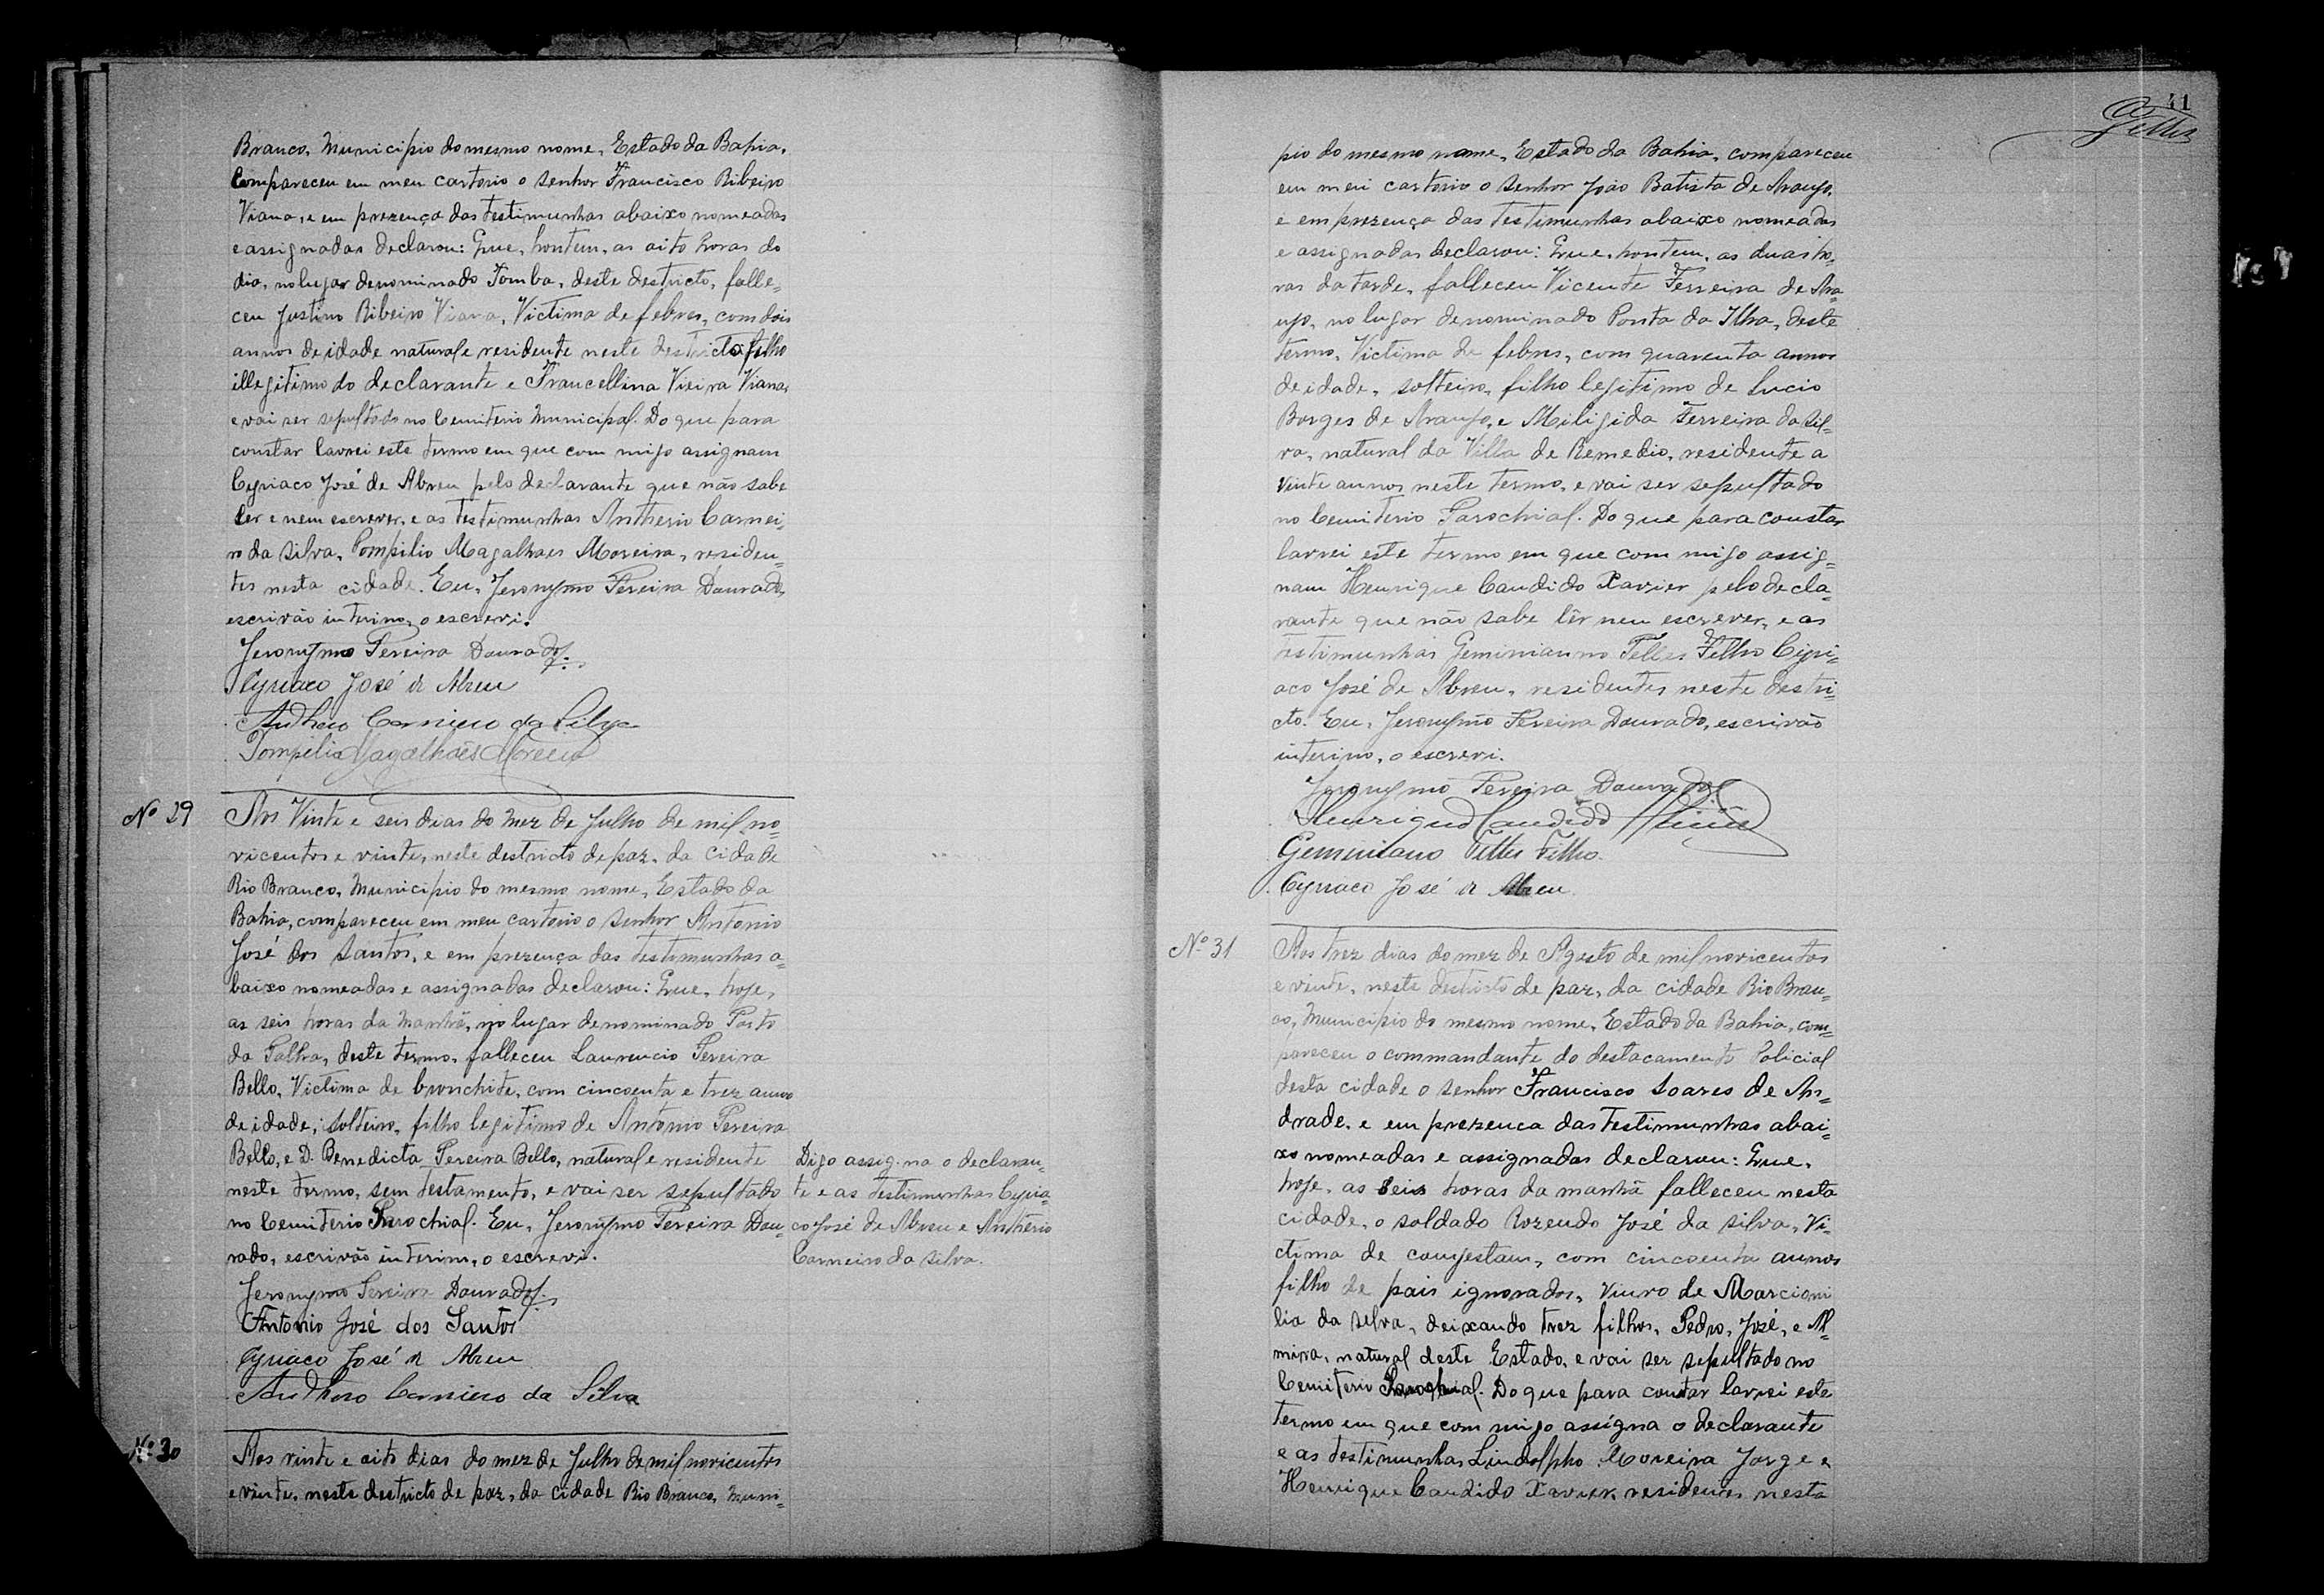 Branco, Municipio do mesmo nome, Estado da Bahia,
Compareceu em meu cartorio o senhor Francisco Ribeiro
Viana, e em prezença das testimunhas abaixo nomeadas
e assignadas declarou: Que, hontem, as oito horas do
dia, no lugar denominado Tomba, deste destricto, falle=
ceu Justino Ribeiro Viana, Victima de febres, com dois
annos de idade natural e residente neste destricto, filho
illegitimo do declarante e Francellina Vieira Viana,
e vai ser sepultado no Cemiterio Municipal. Do que para
constar lavrei este termo em que com migo assignam
Cyriaco José de Abreu pelo declarante que não sabe
ler e nem escrever, e as testimunhas Antherio Carnei=
ro da Silva, Pompilio Magalhaes Moreira, residen=
tes nesta cidade. Eu, Jeronymo Pereira Dourado,
escrivão interino, o escrevi.
Jeronymo Pereira Dourado
Cyriaco José de Abreu
Antherio Carneiro da Silva
Pompilio Magalhães Moreira
Nº 29
Aos Vinte e seis dias do mez de Julho de mil no=
vicentos e vinte, neste destricto de paz, da cidade
Rio Branco, Municipio do mesmo nome, Estado da
Bahia, compareceu em meu cartorio o senhor Antonio
José dos Santos, e em prezença das testimunhas a=
baixo nomeadas e assignadas declarou: Que, hoje,
as seis horas da manhã, no lugar denominado Porto
da Palha, deste termo, falleceu Laurencio Pereira
Bello, Victima de bronchite, com cincoenta e trez annos
de idade, solteiro, filho legitimo de Antonio Pereira
Bello, e D. Benedicta Pereira Bello, natural e residente
neste termo, sem testamento, e vai ser sepultado
no Cemiterio Parochial. Eu, Jeronymo Pereira Dou=
rado, escrivão interino, o escrevi.
Digo assigna o declaran=
te e as testimunhas Cyria=
co José de Abreu e Antherio
Carneiro da Silva.
Jeronymo Pereira Dourado
Antonio José dos Santos
Cyriaco José de Abreu
Antherio Carneiro da Silva
Nº 30
Aos vinte e oito dias do mez de Julho de mil novicentos
e vinte, neste destricto de paz, da cidade Rio Branco, Muni=
41
Telles
pio do mesmo nome, Estado da Bahia, compareceu
em meu cartorio o senhor João Batista de Araujo,
e em prezença das testimunhas abaixo nomeadas
e assignadas declarou: Que, hontem, as duas ho=
ras da tarde, falleceu Vicente Ferreira de Ara=
ujo, no lugar denominado Ponta da Ilha, deste
termo, Victima de febres, com quarenta annos
de idade, solteiro, filho legitimo de Lucio
Borges de Araujo, e Miligida Ferreira da Sil=
va, natural da Villa de Remedio, residente a
vinte annos neste termo, e vai ser sepultado
no Cemiterio Parochial. Do que para constar
lavrei este termo em que com migo assig=
nam Henrique Candido Xavier pelo decla=
rante que não sabe lêr nem escrever, e as
testimunhas Geminianno Telles Filho Cyri=
aco José de Abreu, residentes neste destri=
cto. Eu, Jeronymo Pereira Dourado, escrivão
interino, o escrevi.
Jeronymo Pereira Dourado
Henrique Candido
Geminiano Telles Filho.
Cyriaco José de Abreu
Nº 31
Aos trez dias do mez de Agosto de mil novicentos
e vinte, neste destricto de paz, da cidade Rio Bran=
co, Municipio do mesmo nome, Estado da Bahia, com=
pareceu o commandante do destacamento Policial
desta cidade o senhor Francisco Soares de An=
drade, e em prezenca das testimunhas abai=
xo nomeadas e assignadas declarou: Que,
hoje, as seis horas da manhã falleceu nesta
cidade, o soldado Rozendo José da Silva, Vi=
ctima de congestam, com cincoenta annos
filho de pais ignorados, viuvo de Marcioni
lia da Silva, deixando trez filhos, Pedro, José, e Al=
mira, natural deste Estado, e vai ser sepultado no
Cemiterio Parochial. Do que para constar lavrei este
termo em que com migo assigna o declarante
e as testimunhas Lindolpho Moreira Jorge e
Henrique Candido Xavier, residentes nesta